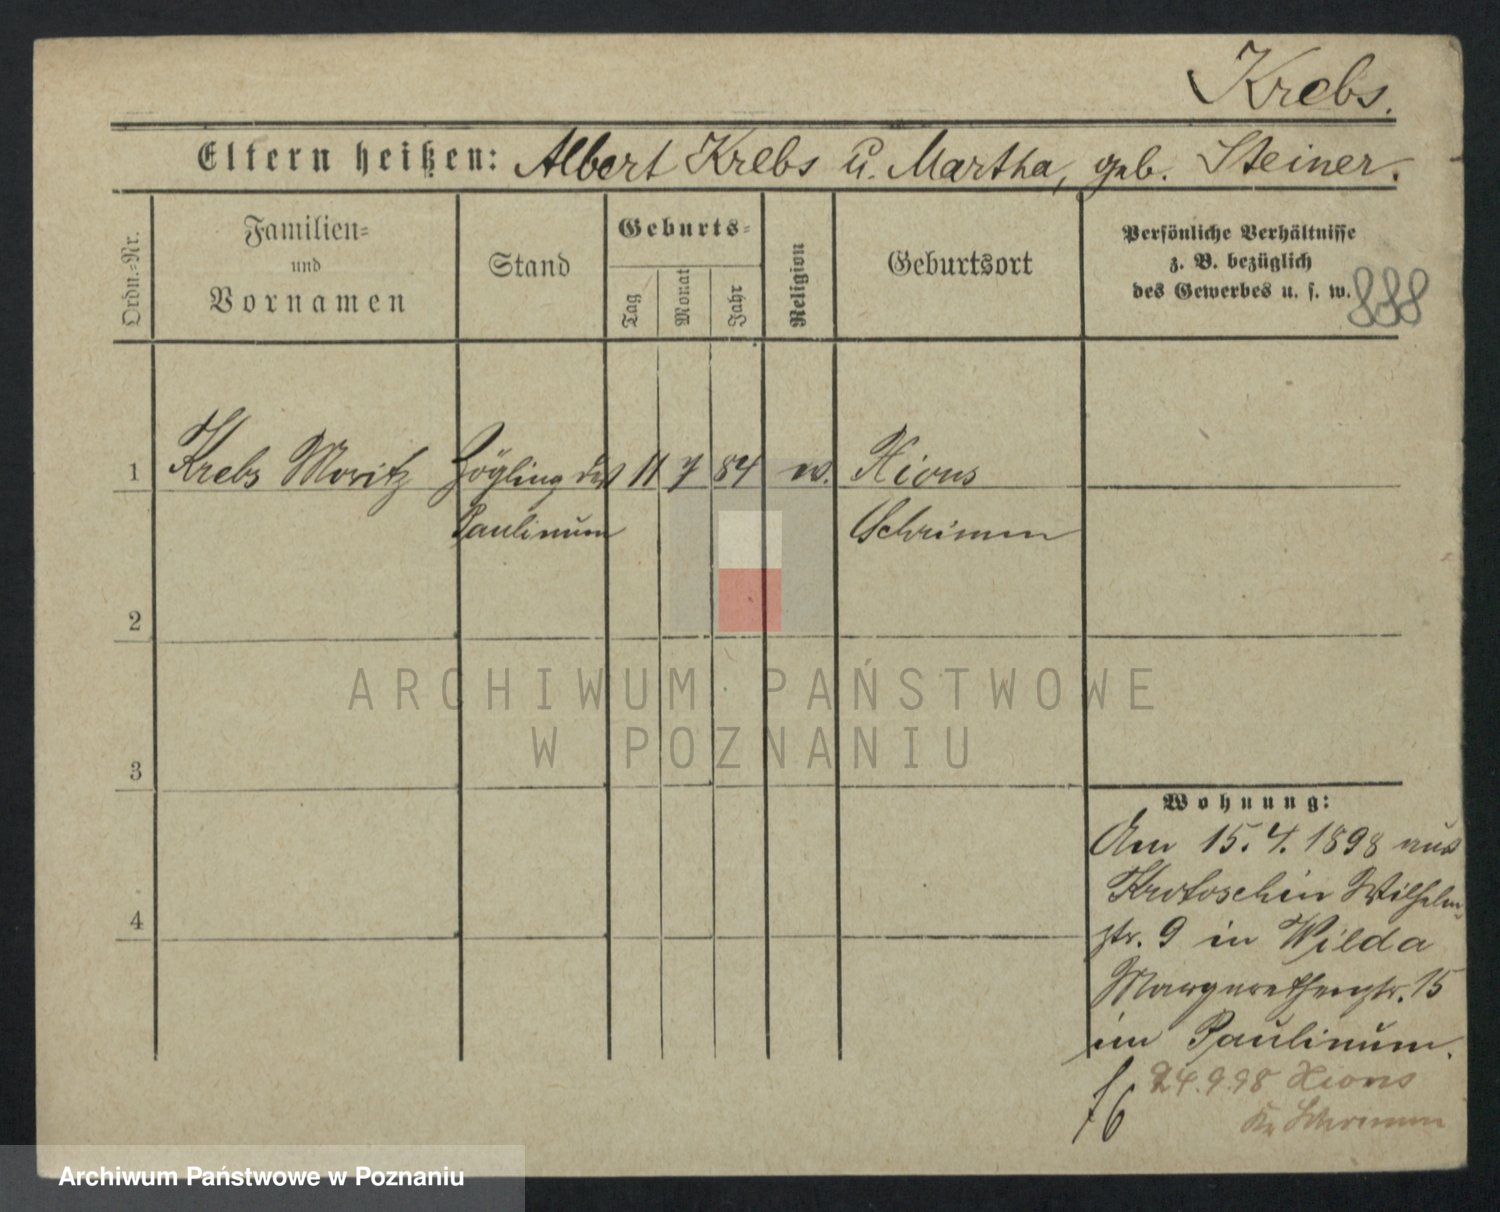 Krebs.
Eltern heißen: Albert Krebs u. Martha, geb. Steiner.
Ordn.=Nr.
Familien=
und
Vornamen
Stand
Geburts=
Tag
Monat
Jahr
Religion
Geburtsort
Persönliche Verhältnisse
z. B. bezüglich
des Gewerbes u. s. w.
888
1 Krebs Moritz Zögling des 11 7 84 Xions
Paulinum Schrimm
2
ARCHIWUM PAŃSTWOWE
W POZNANIU
3
Wohnung:
Am 15.4.1898 aus
Krotoschin Wilhelm
str. 9 in Wilda
4
Margarethenstr. 15
im Paulinum.
24.9.98 Xions
Kr Schrimm
Archiwum Państwowe w Poznaniu